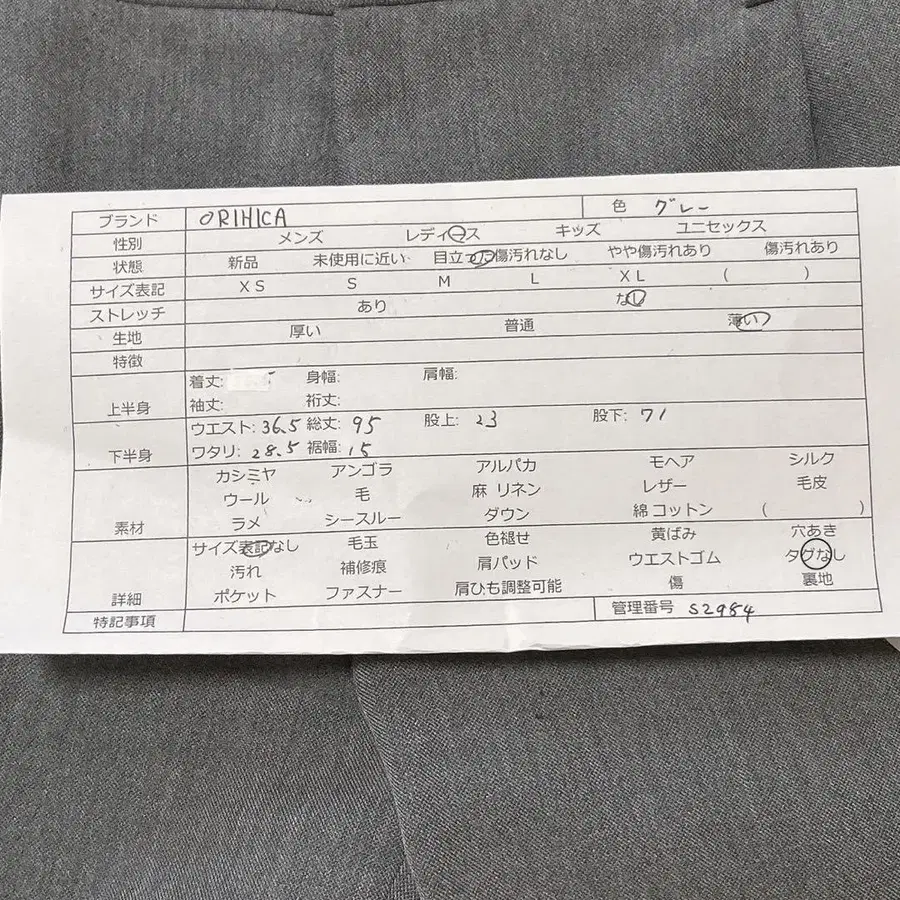 ブランド ORIHICA 色 グレー
性別 メンズ レディース キッズ ユニセックス
状態 新品 未使用に近い 目立った傷汚れなし やや傷汚れあり 傷汚れあり
サイズ表記 XS S M L XL ( )
ストレッチ あり なし
生地 厚い 普通 薄い
特徴
上半身 着丈: 身幅: 肩幅:
袖丈: 裄丈:
下半身 ウエスト: 36.5 総丈: 95 股上: 23 股下: 71
ワタリ: 28.5 裾幅: 15
素材 カシミヤ アンゴラ アルパカ モヘア シルク
ウール 毛 麻 リネン レザー 毛皮
ラメ シースルー ダウン 綿 コットン ( )
詳細 サイズ表記なし 毛玉 色褪せ 黄ばみ 穴あき
汚れ 補修痕 肩パッド ウエストゴム タグなし
ポケット ファスナー 肩ひも調整可能 傷 裏地
特記事項 管理番号 S2984